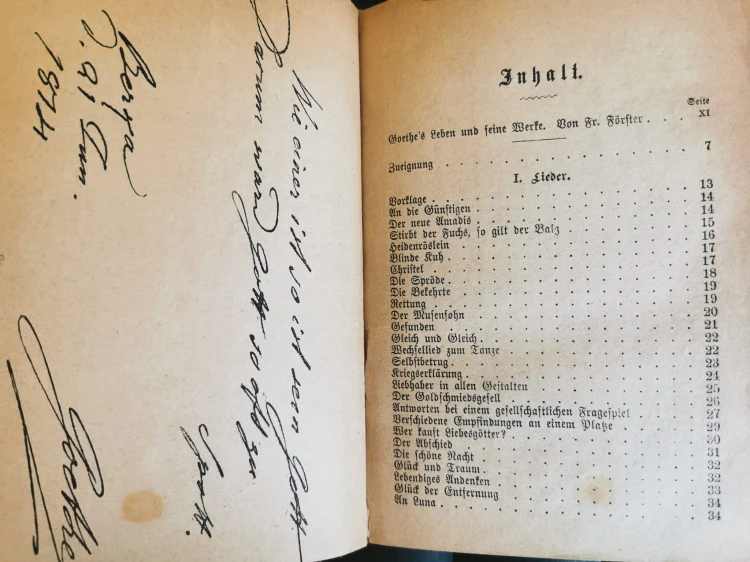 Wie einer ist so ist sein Gott
Darum ward Gott so oft zu
Spott.
Goethe
Berga
d. 21 Jun.
1874
Inhalt.
Seite
Goethe's Leben und seine Werke. Von Fr. Förster . . . XI
Zueignung . . . 7
I. Lieder.
Vorklage . . . 13
An die Günstigen . . . 14
Der neue Amadis . . . 14
Stirbt der Fuchs, so gilt der Balg . . . 15
Heidenröslein . . . 16
Blinde Kuh . . . 17
Christel . . . 17
Die Spröde . . . 18
Die Bekehrte . . . 19
Rettung . . . 19
Der Musensohn . . . 20
Gefunden . . . 21
Gleich und Gleich . . . 22
Wechsellied zum Tanze . . . 22
Selbstbetrug . . . 23
Kriegserklärung . . . 24
Liebhaber in allen Gestalten . . . 25
Der Goldschmiedsgesell . . . 26
Antworten bei einem gesellschaftlichen Fragespiel . . . 27
Verschiedene Empfindungen an einem Platze . . . 29
Wer kauft Liebesgötter? . . . 30
Der Abschied . . . 31
Die schöne Nacht . . . 32
Glück und Traum . . . 32
Lebendiges Andenken . . . 33
Glück der Entfernung . . . 34
An Luna . . . 34